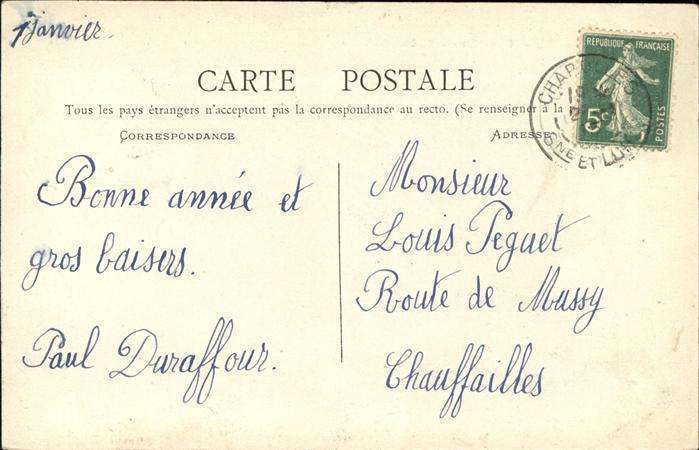 1 janvier.
CARTE POSTALE
Tous les pays étrangers n'acceptent pas la correspondance au recto. (Se renseigner à la
CORRESPONDANCE
ADRESSE
RÉPUBLIQUE FRANÇAISE
5c
POSTES
Bonne année et
gros baisers.
Paul Duraffour.
Monsieur
Louis Peguet
Route de Mussy
Chauffailles